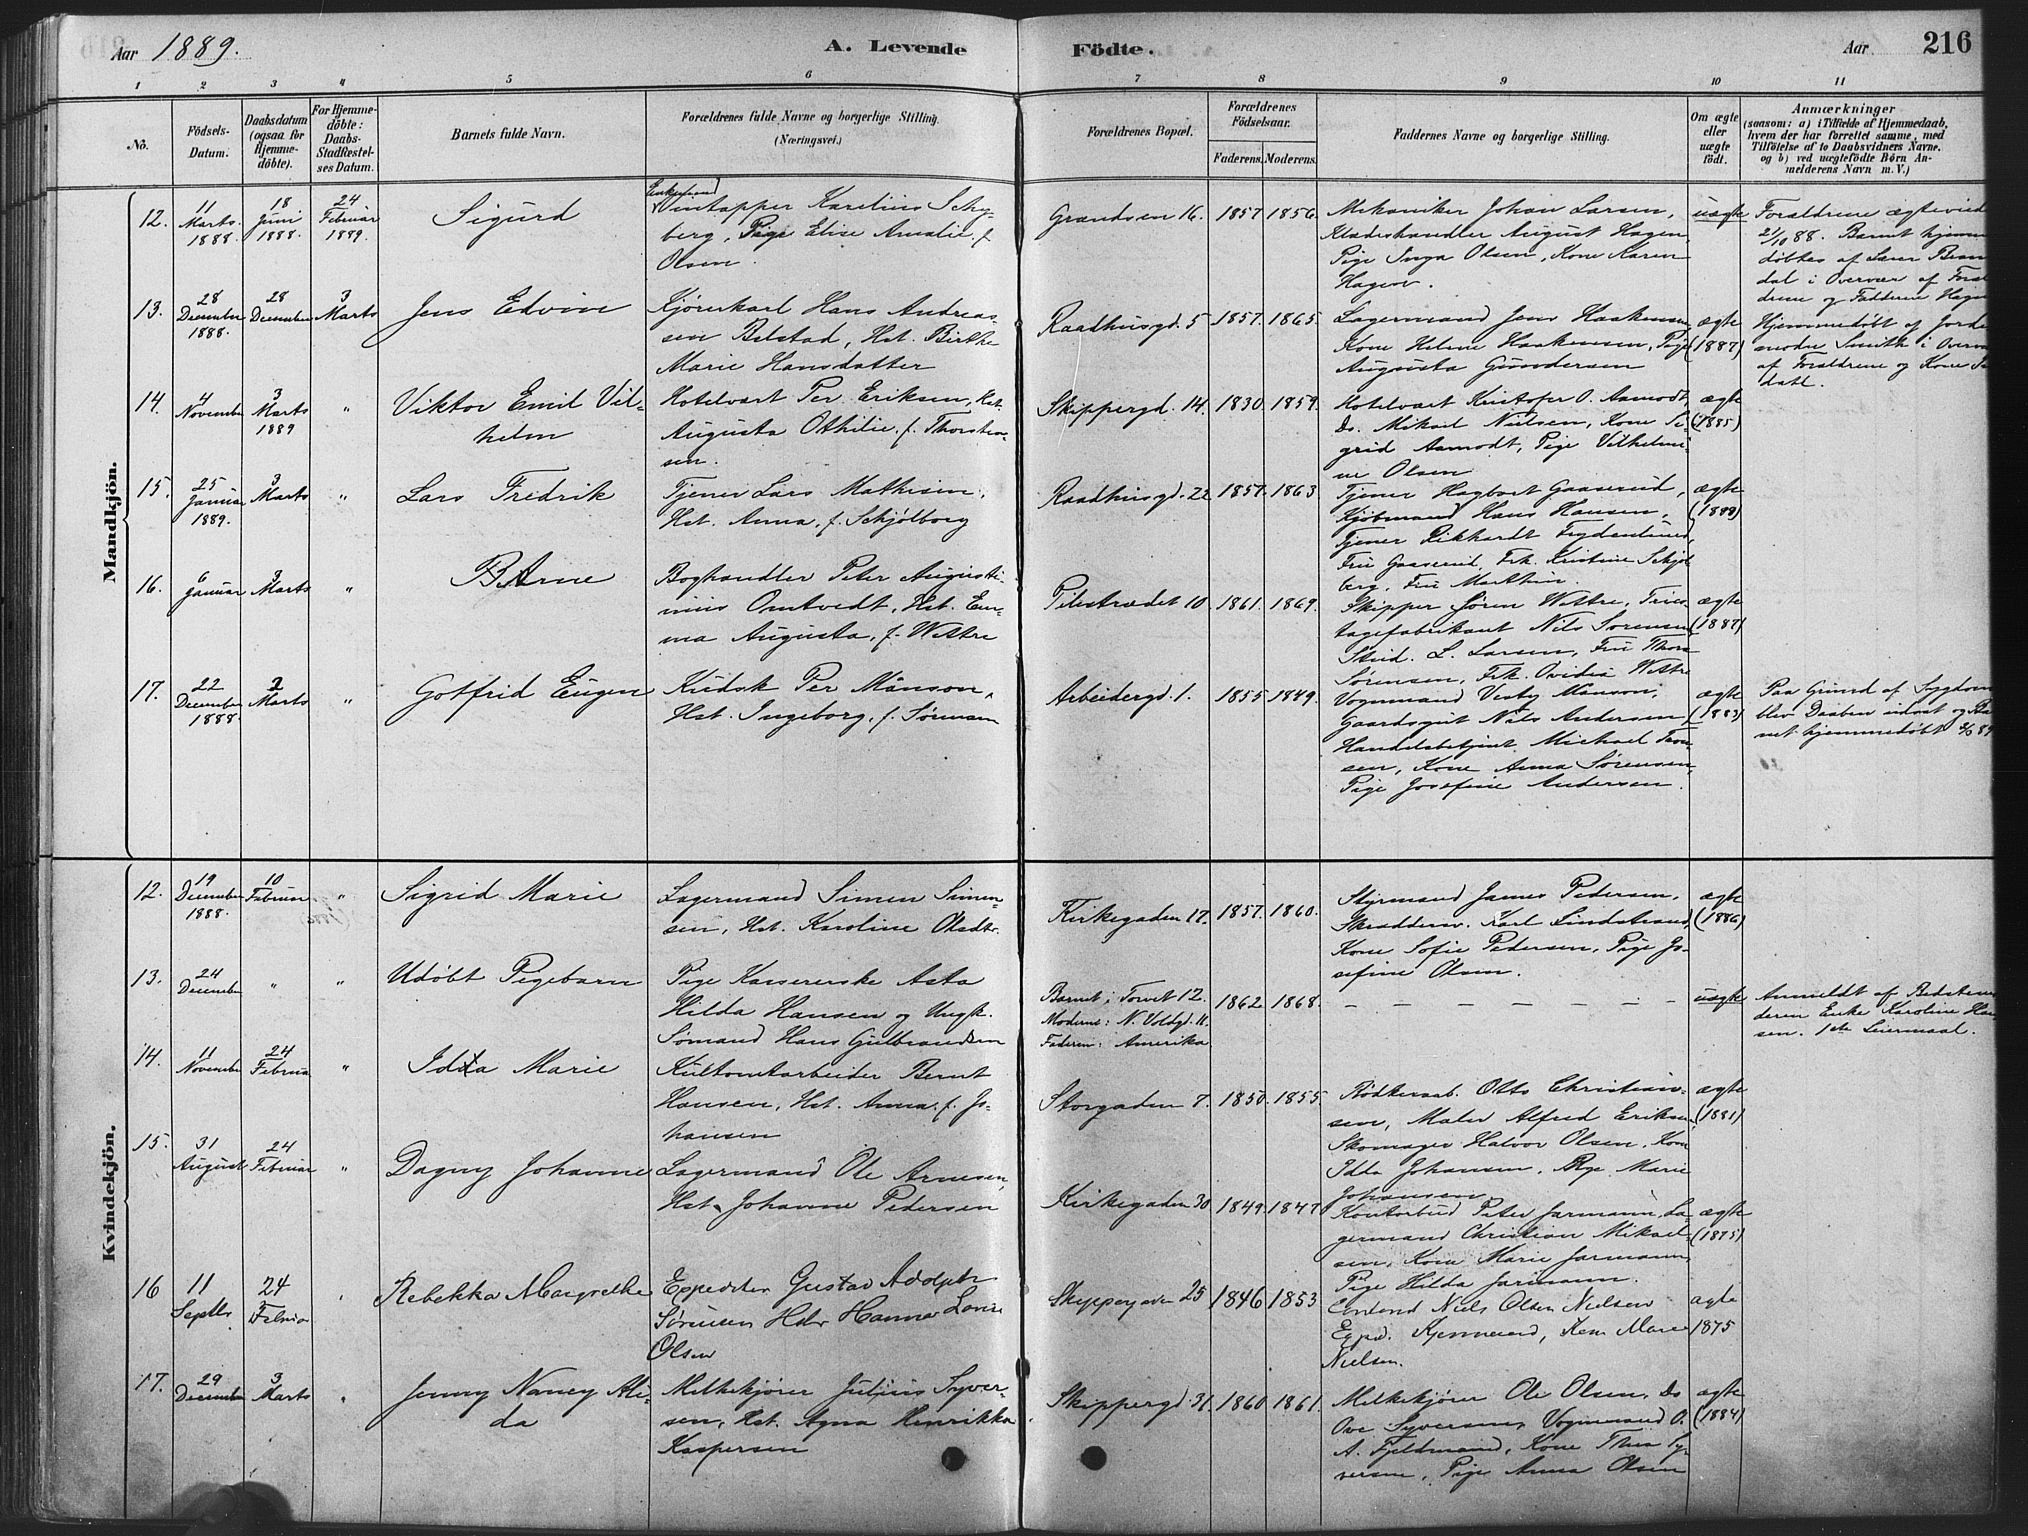 Aar 1889.
A. Levende
Födte.
Aar
216
1 2 3 4 5 6 7 8 9 10 11
No.
Födsels-
Datum.
Daabsdatum
(ogsaa for
Hjemme-
döbte).
For Hjemme-
döbte:
Daabs-
Stadfestel-
ses Datum.
Barnets fulde Navn.
Forældrenes fulde Navne og borgerlige Stilling
(Næringsvei.)
Forældrenes Bopæl.
Forældrenes
Födselsaar.
Faderens. Moderens.
Faddernes Navne og borgerlige Stilling.
Om ægte
eller
uægte
födt.
Anmærkninger
(saasom: a) i Tilfælde af Hjemmedaab,
hvem der har forrettet samme, med
Tilföielse af to Daabsvidners Navne.
og b) ved uægtefödte Börn An-
melderens Navn m. V.)
Mandkjön.
12.
11 Marts 1888.
18 Juni 1888.
24 Februar 1889.
Sigurd
Enkemand
Vintapper Karelius
berg, Pige Elise Amalie f.
Olsen.
Grændsen 16.
1857 1856.
Mekaniker Johan Larsen,
Klædeshandler August Hagen,
Pige Inga Olsen, Kone Karen
Hagen.
uægte
Forældrene ægteviede
21/10 88. Barnet hjemme
døbtes af Lærer
dal i Overvær af Foræl
drene og Fadderne Hagen
13.
28 December 1888.
28 December
3 Marts
Jens Edvin
Kjørerkarl Hans Andreas
sen Belstad, Hst. Birthe
Marie Hansdatter
Raadhusgd. 5
1857. 1865.
Lagermand Jens Haakensen,
Kone Helene Haakensen, Pige
Augusta Gundersen
ægte
(1887)
Hjemmedøbt af Jorde
modre Smith i Overvær
af Forældrene og Kone
datt.
14.
4 November
3 Marts 1889
"
Viktor Emil Vil-
helm
Hotelvært Per Eriksen, Hst.
Augusta Othilie, f. Thorsten-
sen.
Skippergd. 14.
1830. 1859.
Hotelvært Kristofer O. Aamodt,
Do. Mikael Nielsen, Kone Si-
grid Aamodt, Pige Vilhelmi-
ne Olsen
ægte
(1885)
15.
25 Januar 1889.
3 Marts
"
Lars Fredrik
Tjener Lars Mathisen,
Hst. Anna, f. Schjølborg
Raadhusgd. 22
1857. 1863.
Tjener Hagbart Gaaserud,
Kjøbmand Hans Hansen,
Tjener Rikhardt Frydenlund,
Fru Gaaserud, Frk. Kristine Schjøl
berg, Fru Marthin.
ægte
(1888)
16.
6 Januar
3 Marts
"
Arne
Boghandler Peter Augusti-
nius Omtvedt, Hst. Em-
ma Augusta, f. Wettre
Pilestrædet 10.
1861. 1869.
Skipper Søren Wettre, Trico-
tagefabrikant Nils Sørensen
Stud. L. Larsen, Fru Thora
Sørensen, Frk. Ovidia Wettre
ægte
(1887)
17.
22 December 1888.
3 Marts
"
Gotfrid Eugen
Kudsk Per Månson,
Hst. Ingeborg, f. Sørensen
Arbeidergd. 1.
1855 1849.
Vognmand Månson,
Gaardsgut Nils Andersen,
Handelsbetjent Michael
sen, Kone Anna Sørensen,
Pige Josefine Andersen.
ægte
(1883)
Paa Grund af Sygdom
blev Daaben udsat og Bar
net hjemmedøbt
Kvindekjön.
12.
19 December 1888.
10 Februar
"
Sigrid Marie
Lagermand Simen Simen-
sen, Hst. Karoline Olsdtr.
Kirkegaden 17.
1857. 1860.
Styrmand James Pedersen,
Skrædderm. Karl Lindstrand,
Kone Sofie Pedersen, Pige Jo-
sefine Olsen.
ægte
(1886)
13.
24 December
"
"
Udøbt Pigebarn
Pige Kassererske Asta
Hilda Hansen og Ungk.
Sømand Hans Gulbrandsen
Barnet: Torvet 12.
Moderen: N. Voldgd. 11.
Faderen: Amerika
1862 1868.
— — — — — — —
uægte
Anmeldt af Bedstemo
deren Enke Karoline Han
sen. 1ste Leiermaal.
14.
11 November
24 Februar
"
Idda Marie
Kultomtarbeider Bernt
Hansen, Hst. Anna f. Jo-
hansen
Storgaden 7.
1850. 1855.
Rødkersvd. Otto Christian-
sen, Maler Alfred Eriksen,
Skomager Halvor Olsen, Kone
Idda Johansen, Pige Marie
Johansen.
ægte
(1881)
15.
31 August
24 Februar
"
Dagny Johanne
Lagermand Ole Arnesen,
Hst. Johanne Pedersen
Kirkegaden 30
1849. 1847
Kontorbud Peter Jarmann, La-
germand Christian Mikael-
sen, Kone Marie Jarmann,
Pige Hilda Jarmann.
ægte
(1875)
16
11 Septbr
24 Februar
Rebekka Margrethe
Expeditør Gustav Adolph
Sörensen Hstr Hanna Lovise
Olsen
Skippergaden 25
1846 1853
Niels Olsen Nielsen
Expd. Kjennerud, Kone Marie
Nielsen.
ægte
1875
17.
29 December
3 Marts
Jenny Nancy Ali-
da
Melkekjører Julius Syver-
sen, Hst. Agna Henrikka
Kaspersen
Skippergd. 31.
1860 1861.
Melkekjører Ole Olsen, Do
Ove Syversen, Vognmand O.
A. Fjeldmand, Kone Thea Sy-
versen, Pige Anna Olsen
ægte
(1884)